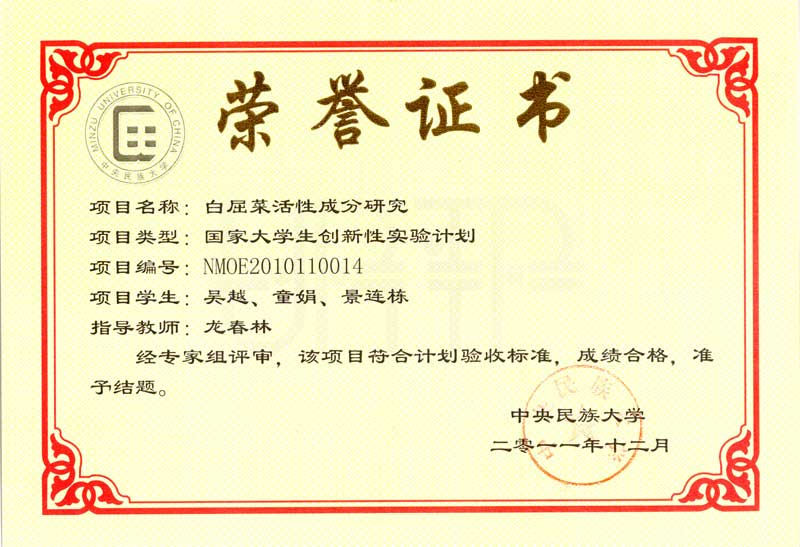 荣誉证书
MINZU UNIVERSITY OF CHINA
中央民族大学
项目名称：白屈菜活性成分研究
项目类型：国家大学生创新性实验计划
项目编号：NMOE2010110014
项目学生：吴越、童娟、景连栋
指导教师：龙春林
经专家组评审，该项目符合计划验收标准，成绩合格，准
予结题。
中央民族大学
二零一一年十二月